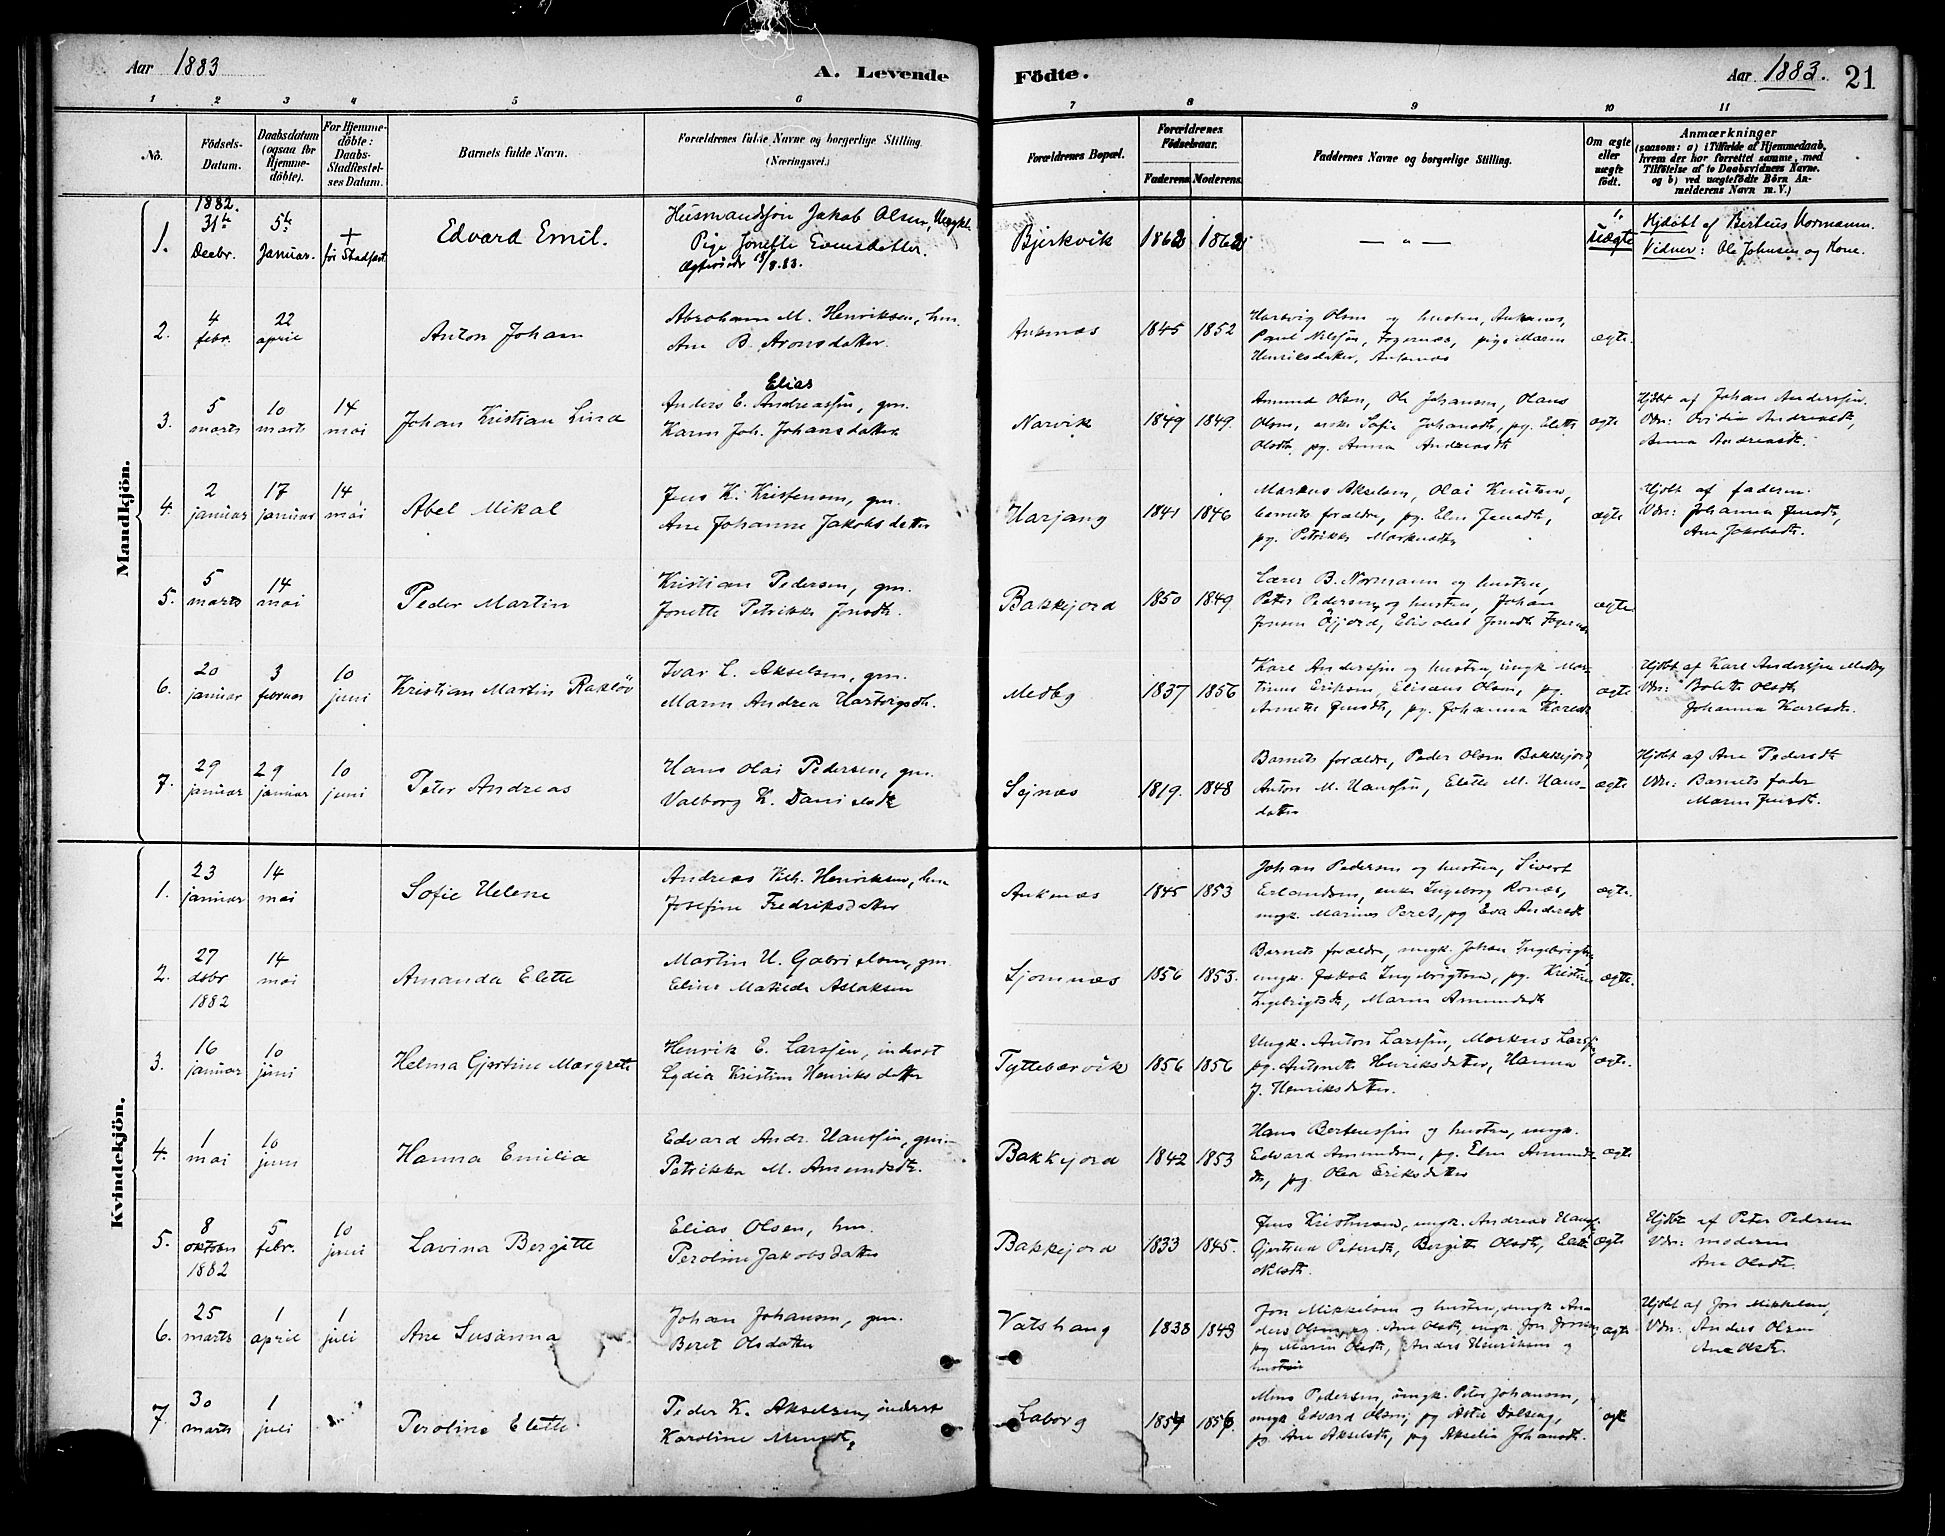 Aar 1883
A. Levende
Födte.
Aar 1883. 21
1 2 3 4 5 6 7 8 9 10 11
No.
Födsels-
Datum.
Daabsdatum
(ogsaa for
Hjemme-
döbte).
For Hjemme-
döbte:
Daabs-
Stadfæstel-
ses Datum.
Barnets fulde Navn.
Forældrenes fulde Navne og borgerlige Stilling.
(Næringsvei.)
Forældrenes Bopæl.
Forældrenes
Födselsaar.
Faderens. Moderens.
Faddernes Navne og borgerlige Stilling.
Om ægte
eller
uægte
födt.
Anmærkninger
(saasom: a) i Tilfælde af Hjemmedaab,
hvem der har forrettet samme, med
Tilföielse af to Daabsvidners Navne,
og b) ved uægtefödte Börn An-
melderens Navn m. V.)
Mandkjön.
1. 1882. 31te Decbr. 5te Januar. + før Stadfæst.
Edvard Emil.
Husmandssøn Jakob Olsen, Ungk.
Pige Jonette Evensdatter.
Bjerkvik 1862 1862 — „ —
1. uægte
Hjdøbt af Berteus Normann.
Vidner: Ole Johnsen og Kone.
2. 4 febr. 22 april
Anton Johan
Abraham M. Henriksen, hm.
Ane B. Aronsdatter
Ankenæs 1845 1852
Hartvig Olsen og hustru, Ankenæs,
Paul Nilssøn, Fagernæs, pige Maren
Henriksdatter, Ankenæs
ægte.
3. 5 marts 10 marts 14 mai
Johan Kristian Lind
Elias
Anders E. Andreassen, gm.
Karen Joh. Johansdatter
Narvik 1849 1849.
Amund Olsen, Ole Johansen, Olaus
Olsen, enke Sofie Johansdt, pg. Elette
Olsdt. pg. Anna Andreasdt
ægte
Hjdbt af Johan Anderssen.
Vdn: Andreasdt,
Anna Andreasdt.
4. 2 januar 17 januar 14 mai
Abel Mikal
Jens K. Kristensen, gm.
Ane Johanne Jakobsdatter
Harjang 1841 1846
Markus Akselsen, Olai Knutsen,
barnets forældre, pg. Elen Jensdt,
pg. Petrikke Markusdt
ægte
Hjdbt af faderen.
Vdn: Johanna Jensdt,
Ane Jakobsdt.
5. 5 marts 14 mai
Peder Martin
Kristian Pedersen, gm.
Jonette Petrikke Jensdt.
Bakkejord 1850 1849.
Lærer B. Normann og hustru,
Peter Pedersen og hustru, Johan
Jensen Øijord, Elisabet Jensdt Fagernæs
ægte
6. 20 januar 3 februar 10 juni
Kristian Martin Rakløv
Ivar L. Akselsen, gm.
Maren Andrea Hartvigsdt.
Medby 1837 1856
Karl Anderssen og hustru, ungk Mar-
tinus Eriksen, Eliseus Olsen, pg.
Annette Jensdt, pg. Johanna Karlsdt
ægte
Hjdbt af Karl Anderssen Medby
Vdn: Bolette Olsdt
Johanna Karlsdt.
7. 29 januar 29 januar 10 juni
Peter Andreas
Hans Olai Pedersen, gm.
Valborg K. Danielsdt
Sejnæs 1819. 1848
Barnets forældre, Peder Olsen Bakkejord,
Anton M. Hanssen, Elette M. Hans-
datter
ægte
Hjdbt af Ane Pedersdt
Vdn: Barnets fader
Maren Jensdt.
Kvindekjön.
1. 23 januar 14 mai
Sofie Helene
Andreas Vilh. Henriksen, hm
Josefine Fredriksdatter
Ankenæs 1845 1853
Johan Pedersen og hustru, Sivert
Erlandsen, enke Ingeborg Rones,
ungk. Marines Peret, pg Eva Andersdt
ægte.
2. 27 dsbr 1882 14 mai
Amanda Elette
Martin U. Gabrielsen, gm.
Eline Matilde Aslaksen
Sjomnæs 1856 1853.
Barnets forældre, ungk. Johan Ingebrigtsen,
ungk. Jakob Ingebrigtsen, pg. Kristine
Ingebrigtsdt, Maren Amundsdt
ægte.
3. 16 januar 10 juni
Helma Gjertine Margrete
Henrik E. Larssen, inderst
Lydia Kristine Henriksdatter
Tyttebærvik 1856 1856
Ungk. Anton Larssen, Markus Larssen
pg. Antonette Henriksdatter, Hanna
J. Henriksdatter.
ægte.
4. 1 mai 10 juni
Hanna Emilia
Edvard Andr. Hanssen, gm.
Petrikke M. Amundsdt.
Bakkejord 1842 1853
Hans Berteussen og hustru, ungk.
Edvard Amundsen, pg. Elen Amunds-
dt, pg. Olea Eriksdatter
ægte
5. 8 oktober 1882 5 febr. 10 juni
Lavina Bergitte
Elias Olsen, hm.
Peroline Jakobsdatter
Bakkejord 1833 1845.
Jens Kristensen, ungk. Andreas Hanssen
Gjertrud Petersdt, Bergitte Olsdt, Elette
Nilsdt.
ægte
Hjdbt af Peter Pedersen
Vdn: moderen
Ane Olsdt.
6. 25 marts 1 april 1 juli
Ane Susanna
Johan Johansen, gm.
Beret Olsdatter
Vatshaug 1838 1843
Jon Mikkelsen og hustru, ungk An-
ders Olsen og Ane Olsdt, ungk. Jon Jonsen,
pg Maren Olsdt, Anders Henriksen og
hustru
ægte
Hjdbt af Jon Mikkelsen,
Vdn: Anders Olsen
Ane Olsdt.
7. 30 marts 1 juli
Peroline Elette
Peder K. Akselsen, inderst
Karoline Monsdt.
Laberg 1854 1856
Mons Pedersen, ungk. Peter Johansen,
ungk Edvard Olsen, pg Dalseng,
pg Ane Akselsdt, pg Akselia Johansdt.
ægt